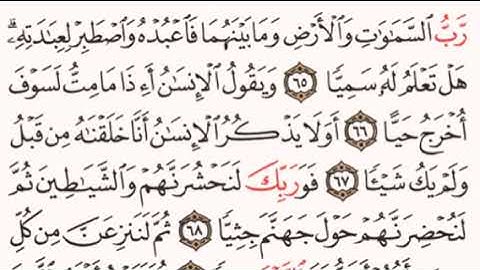 رَّبُّ ٱلسَّمَٰوَٰتِ وَٱلْأَرْضِ وَمَا بَيْنَهُمَا فَٱعْبُدْهُ وَٱصْطَبِرْ لِعِبَٰدَتِهِۦۚ
هَلْ تَعْلَمُ لَهُۥ سَمِيًّا ٦٥ وَيَقُولُ ٱلْإِنسَٰنُ أَءِذَا مَا مِتُّ لَسَوْفَ
أُخْرَجُ حَيًّا ٦٦ أَوَلَا يَذْكُرُ ٱلْإِنسَٰنُ أَنَّا خَلَقْنَٰهُ مِن قَبْلُ
وَلَمْ يَكُ شَيْـًٔا ٦٧ فَوَرَبِّكَ لَنَحْشُرَنَّهُمْ وَٱلشَّيَٰطِينَ ثُمَّ
لَنُحْضِرَنَّهُمْ حَوْلَ جَهَنَّمَ جِثِيًّا ٦٨ ثُمَّ لَنَنزِعَنَّ مِن كُلِّ